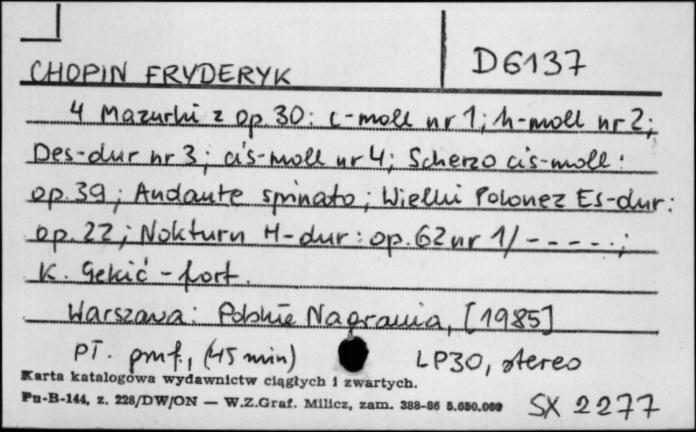 D6137
CHOPIN FRYDERYK
4 Mazurki z op. 30: c-moll nr 1; h-moll nr 2;
Des-dur nr 3; cis-moll nr 4; Scherzo cis-moll:
op. 39; Andante spinato; Wielki Polonez Es-dur:
op. 22; Nokturn H-dur: op. 62 nr 1/ - - - - -;
K. Gekić - fort.
Warszawa: Polskie Nagrania, [1985]
PT. pmf., (45 min) LP30, stereo
Karta katalogowa wydawnictw ciągłych i zwartych.
Pu-B-144, z. 228/DW/ON — W.Z.Graf. Milicz, zam. 388-86 5.650.000
SX 2277